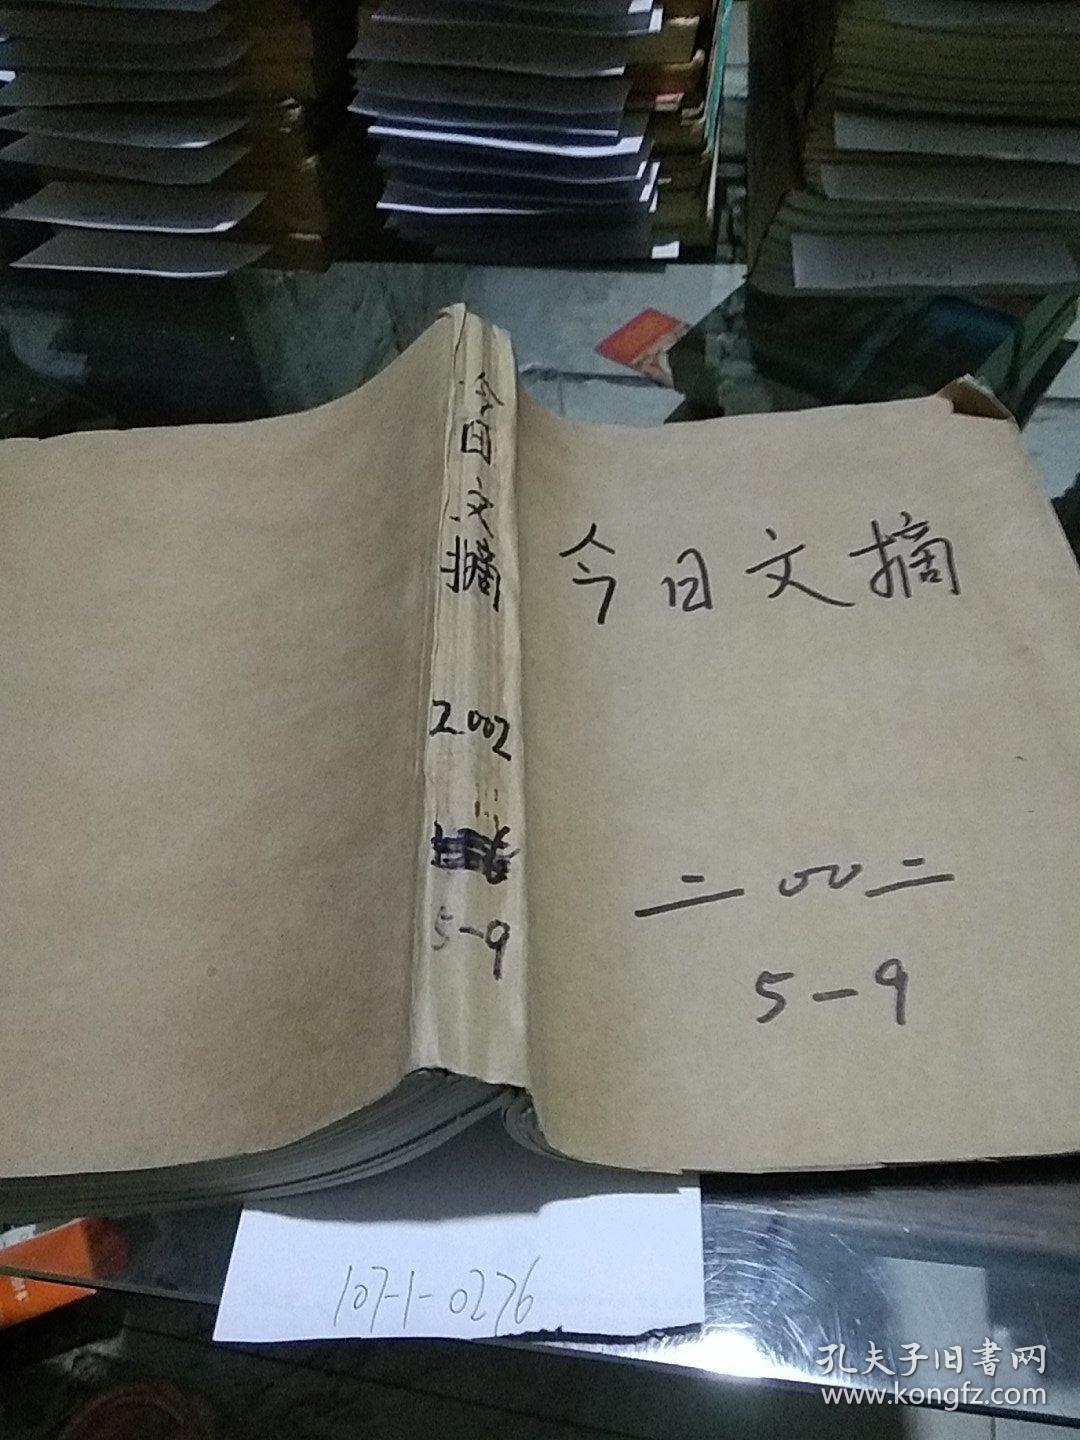 今日文摘
2002
5-9
今日文摘
二00二
5-9
107-1-0276
107-1-0261
孔夫子旧書网
www.kongfz.com